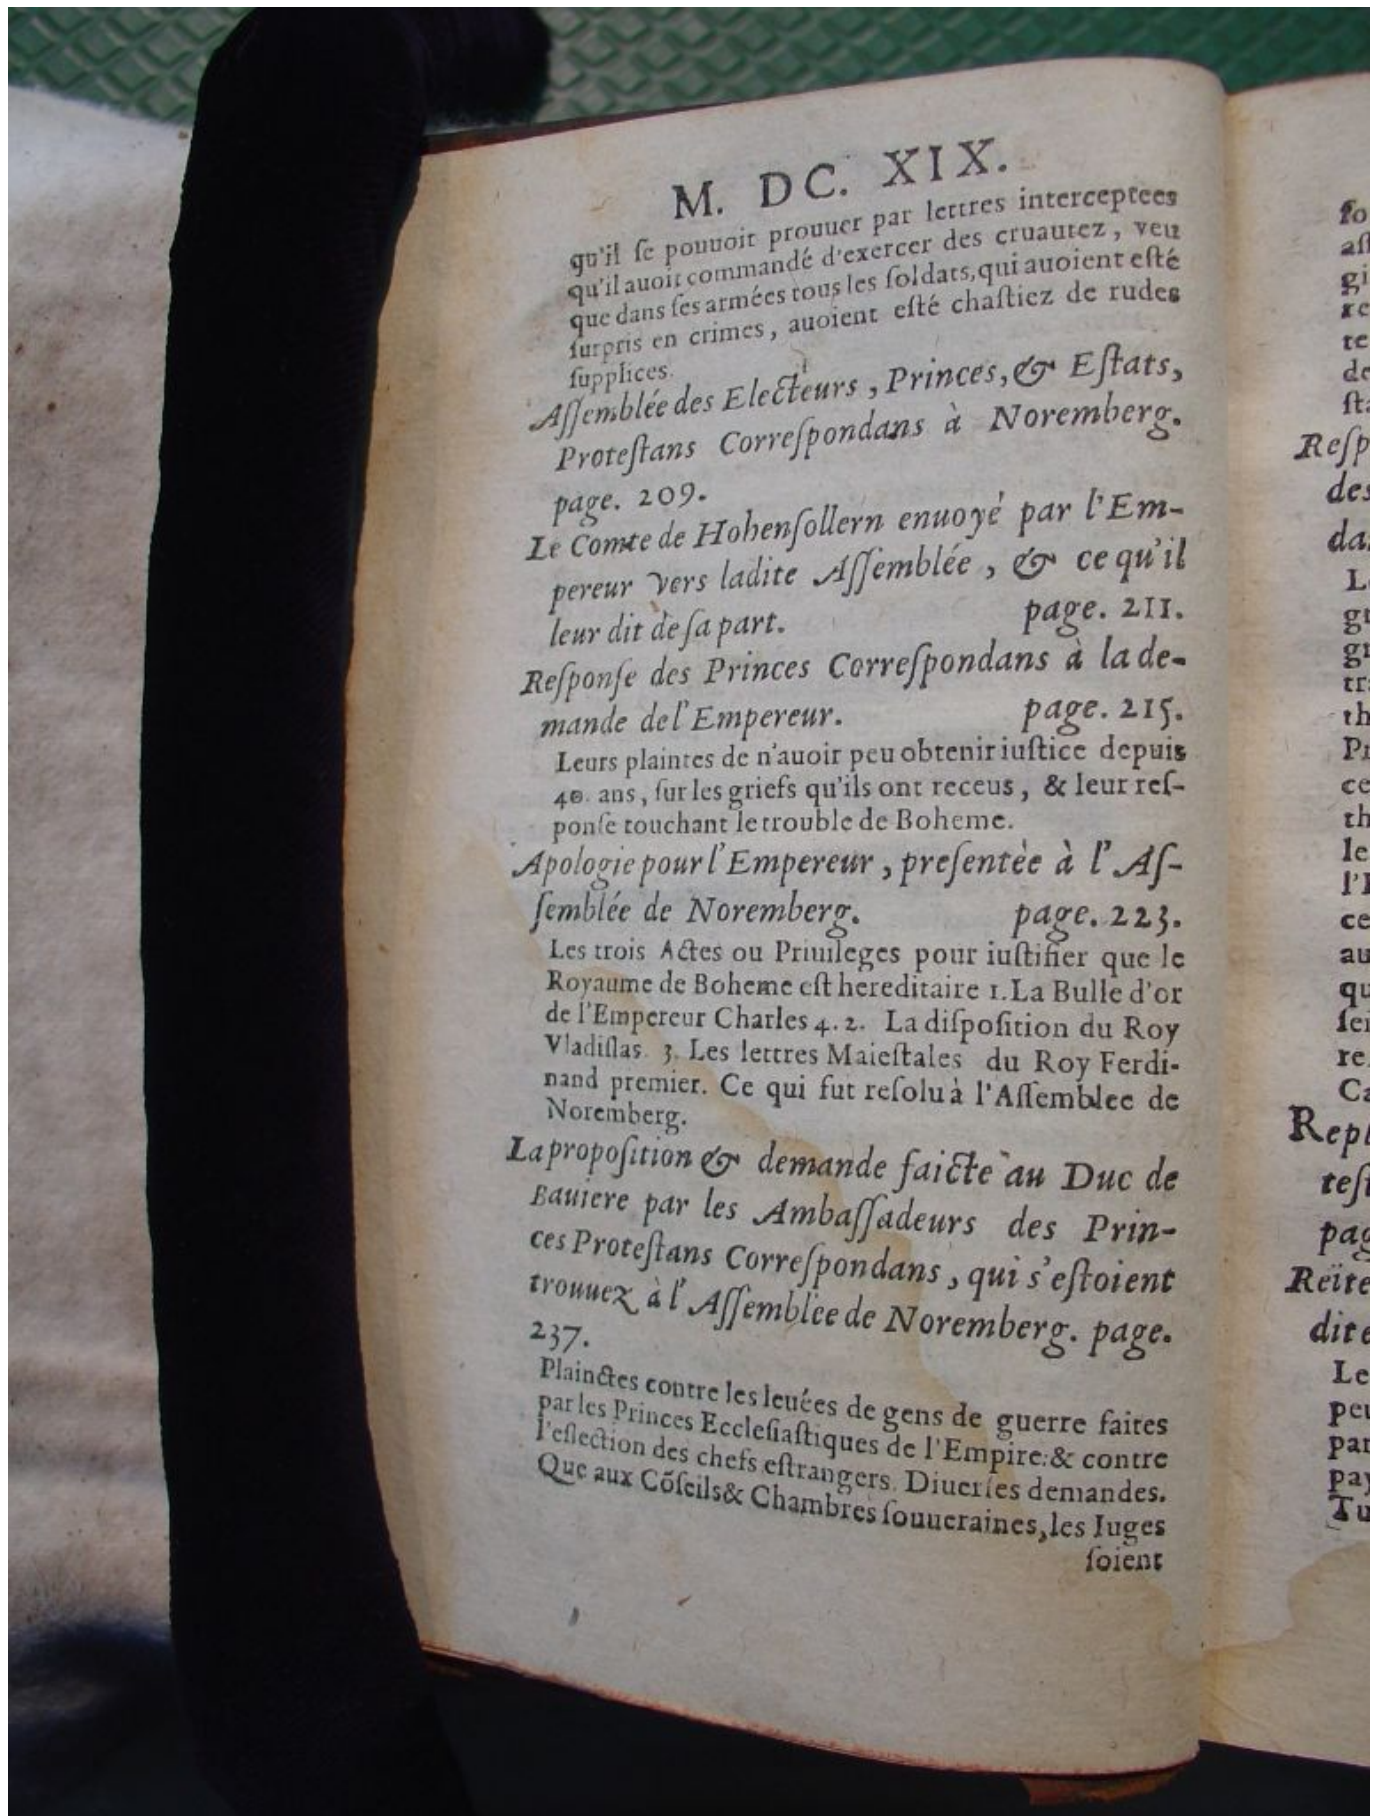 M. DC. XIX.
qu'il ſe pouuoit prouuer par lettres interceptees
qu'il auoit commandé d'exercer des cruautez, veu
que dans ſes armées tous les ſoldats, qui auoient eſté
ſurpris en crimes, auoient eſté chaſtiez de rudes
ſupplices.
Aſſemblée des Electeurs, Princes, & Eſtats,
Proteſtans Correſpondans à Noremberg.
page. 209.
Le Comte de Hohenſollern enuoyé par l'Em-
pereur vers ladite Aſſemblée, & ce qu'il
leur dit de ſa part. page. 211.
Reſponſe des Princes Correſpondans à la de-
mande de l'Empereur. page. 215.
Leurs plaintes de n'auoir peu obtenir iuſtice depuis
40. ans, ſur les griefs qu'ils ont receus, & leur reſ-
ponſe touchant le trouble de Boheme.
Apologie pour l'Empereur, preſentèe à l'Aſ-
ſemblée de Noremberg. page. 223.
Les trois Actes ou Priuileges pour iuſtifier que le
Royaume de Boheme eſt hereditaire 1. La Bulle d'or
de l'Empereur Charles 4. 2. La diſpoſition du Roy
Vladiſlas. 3. Les lettres Maieſtales du Roy Ferdi-
nand premier. Ce qui fut reſolu à l'Aſſemblee de
Noremberg.
La propoſition & demande faicte au Duc de
Bauiere par les Ambaſſadeurs des Prin-
ces Proteſtans Correſpondans, qui s'eſtoient
trouuez à l'Aſſemblée de Noremberg. page.
237.
Plainctes contre les leuées de gens de guerre faites
par les Princes Eccleſiaſtiques de l'Empire: & contre
l'eſlection des chefs eſtrangers. Diuerſes demandes.
Que aux Cõſeils & Chambres ſouueraines, les Iuges
ſoient
Reſp
des
L
Repl
teſt
pag
Reïte
dite
Le
peu
par
pay
Tu